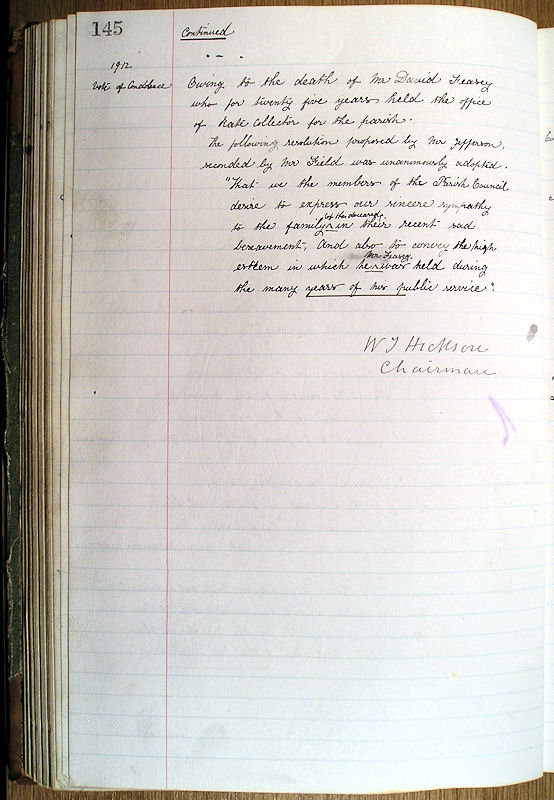 145
Continued
1912
Vote of Condolence
Owing to the death of Mr David Feasey
who for twenty five years held the office
of Rate Collector for the parish.
The following resolution proposed by Mr Jefferson,
seconded by Mr Field was unanimously adopted.
"That we the members of the Parish Council
desire to express our sincere sympathy
to the family of the deceased in their recent sad
bereavement, And also to convey the high
esteem in which he Mr Feasey was held during
the many years of his public service".
W T Hickson
Chairman